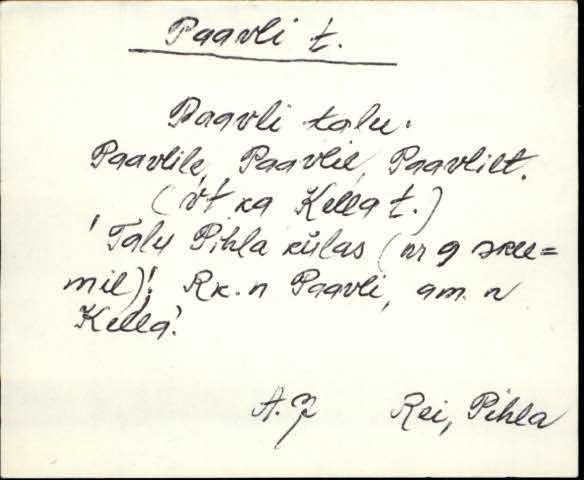 Paavli t.
Paavli talu.
Paavlile, Paavlil, Paavlilt.
(vt ka Kella t.)
'Talu Pihla külas (nr 9 skee=
mil)'. Rk. n Paavli, am. n
Kella'.
A. P Rei, Pihla